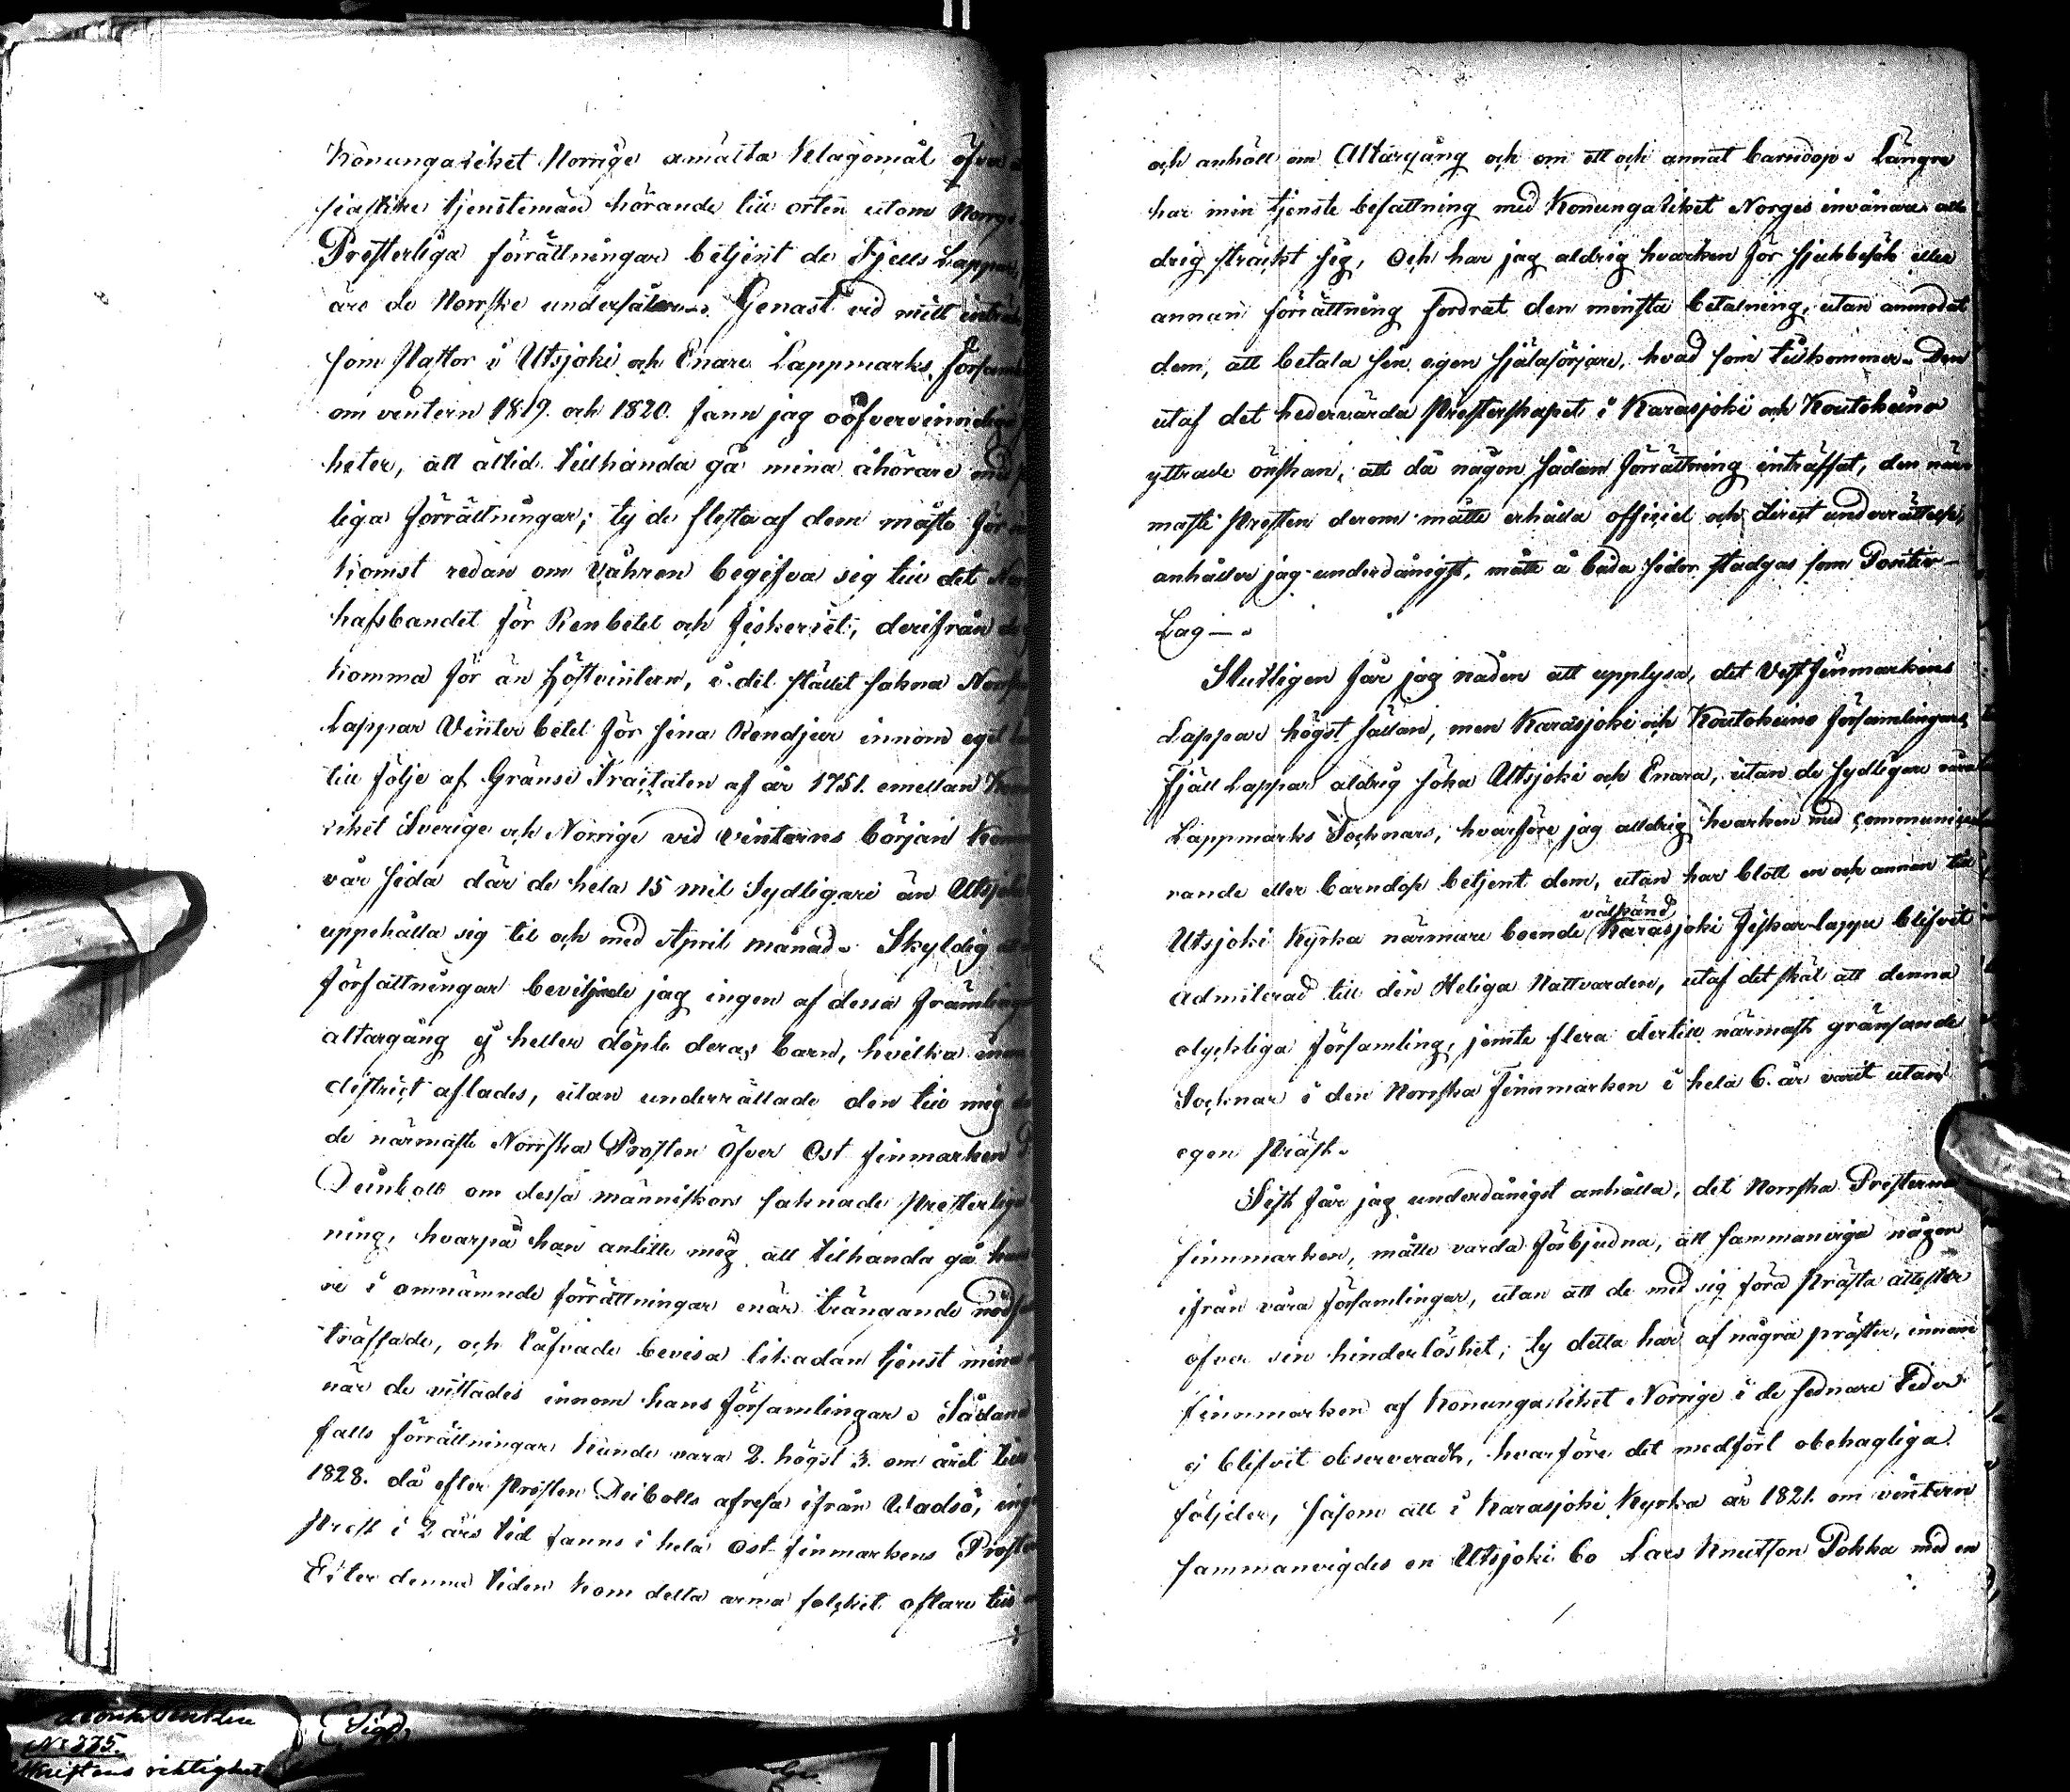 Konungariket Norrige anmälta klagomål öfver
siastike tjenstemän hörande till orten utom Norrge
Presterliga förrättningar betjent de Fjells Lappar,
äro de Norrske undersåtare. Genast vid mitt inträde
som Pastor i Utsjoki och Enare Lappmarks Församl
om vintern 1819. och 1820. fann jag oöfvervinneliga
heter, att altid tillhanda gå mina åhörare med
liga förrättningar; ty de flesta af dem måste för
komst redan om Våhren begifva sig till det
hafsbandet för Renbetet och fiskeriet, derifrån de
komma för än höstvintern, i det stället sakna Norrska
Lappar Vinter betet för sina Rendjur innom eget
till följe af Gränse Tractaten af år 1751. emellan Konu
riket Sverige och Norrige vid vinterns början komma
vår sida där de hela 15 mil Sydligare än Utsjoki
uppehålla sig til och med April månad. Skyldig
författningar beviljade jag ingen af dessa främlingar
altargång ej heller döpte deras barn, hvilka
district aflades, utan underrättade den till mig
de närmaste Norrska Prosten öfver Ost finmarken
Deinboll om dessa människors saknade Presterliga
ning, hvarpå han anlitte mig att tilhanda gå
re i omnämnde förrättningar enär trängande nödfall
träffade, och låfvade bevisa likadan tjenst mina
när de vittades innom hans församlingar. Sådana
falls förrättningar kunde vara 2. högst 3. om året till
1828. då efter Prosten Deibolls afresa ifrån Wadsö, ing
Prest i 2 års tid fanns i hela Ost finmarkens Proste
Efter denna tiden kom detta arma folcket oftare till
och anhöll om Altargång och om ett och annat barndop. Längre
har min tjenste befattning med Konungariket Norges invånare al
drig sträckt sig, Och har jag aldrig hvarken för sjukbesök eller
annan förrättning fordrat den minsta betalning, utan anmodat
dem, att betala sin egen själasörjare, hvad som tillkommer. Den
utaf det hedervärda Presterskapet i Karasjoki och Koutokeino
yttrade önskan, att då någon sådan förrättning inträffat, den när
maste Presten derom måtte erhålla officiel och direct underrättelse,
anhåller jag underdånigst, måtte å båda sidor stadgas som Positiv
Lag —.
Slutligen får jag nåden att upplysa, det Vest finmarkens
Lappar högst sällan, men Karasjoki och Koutokeino församlingars
fjäll Lappar aldrig söka Utsjoki och Enara, utan de sydligare
Lappmarks Socknar, hvarföre jag alldrig hvarken med communice
rande eller barndop betjent dem, utan har blott en och annan till
välkänd
Utsjoki Kyrka närmare boende Karasjoki Fiskar-lapp blifvit
admiterad till den Heliga Nattvarden, utaf det skäl att denna
olyckliga församling, jemte flera dertill närmast gränsande
Socknar i den Norrska Finnmarken i hela 6. år varit utan
egen Präst.
Sist får jag underdånigst anhålla, det Norrska Presterna
finnmarken, måtte varda förbjudna, att sammanviga någon
ifrån våra församlingar, utan att de med sig föra Prästa attester
öfver sin hinderlöshet; ty detta har af några präster, innom
finnmarken af Konungariket Norrige i de sednare tider
ej blifvit observeradt, hvarföre det medfört obehagliga
följder, såsom att i Karasjoki Kyrka år 1821. om vintern
sammanvigdes en Utsjoki bo Lars Knutson Pokka med en
No 335.
riktighet